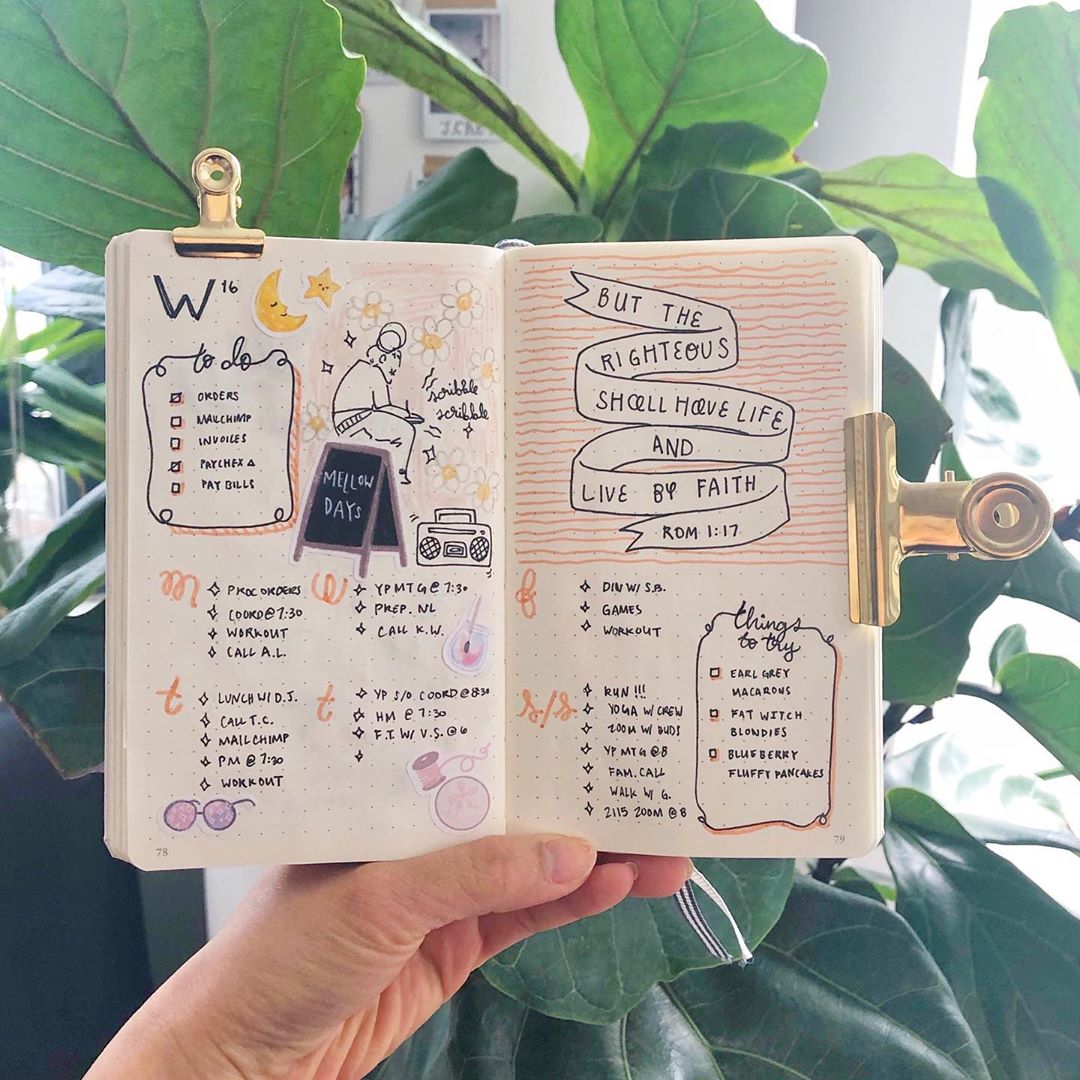 W16
to do
ORDERS
MAILCHIMP
INVOICES
PAYCHEX
PAY BILLS
scribble
scribble
MELLOW
DAYS
m
PROC ORDERS
COORD@7:30
WORKOUT
CALL A.L.
t
LUNCH W/ D.J.
CALL T.C.
MAILCHIMP
PM @ 7:30
WORKOUT
w
YP MTG @ 7:30
PREP. NL
CALL K.W.
t
YP S/O COORD @ 8:30
HM @ 7:30
F.T. W/ V.S. @ 6
78
BUT THE
RIGHTEOUS
SHALL HAVE LIFE
AND
LIVE BY FAITH
ROM 1:17
f
DIN W/ S.B.
GAMES
WORKOUT
s/s
RUN !!!
YOGA W/ CREW
ZOOM W/ BUDS
YP MTG @ 8
FAM. CALL
WALK W/ G.
2115 ZOOM @ 8
things
to try
EARL GREY
MACARONS
FAT WITCH
BLONDIES
BLUEBERRY
FLUFFY PANCAKES
79